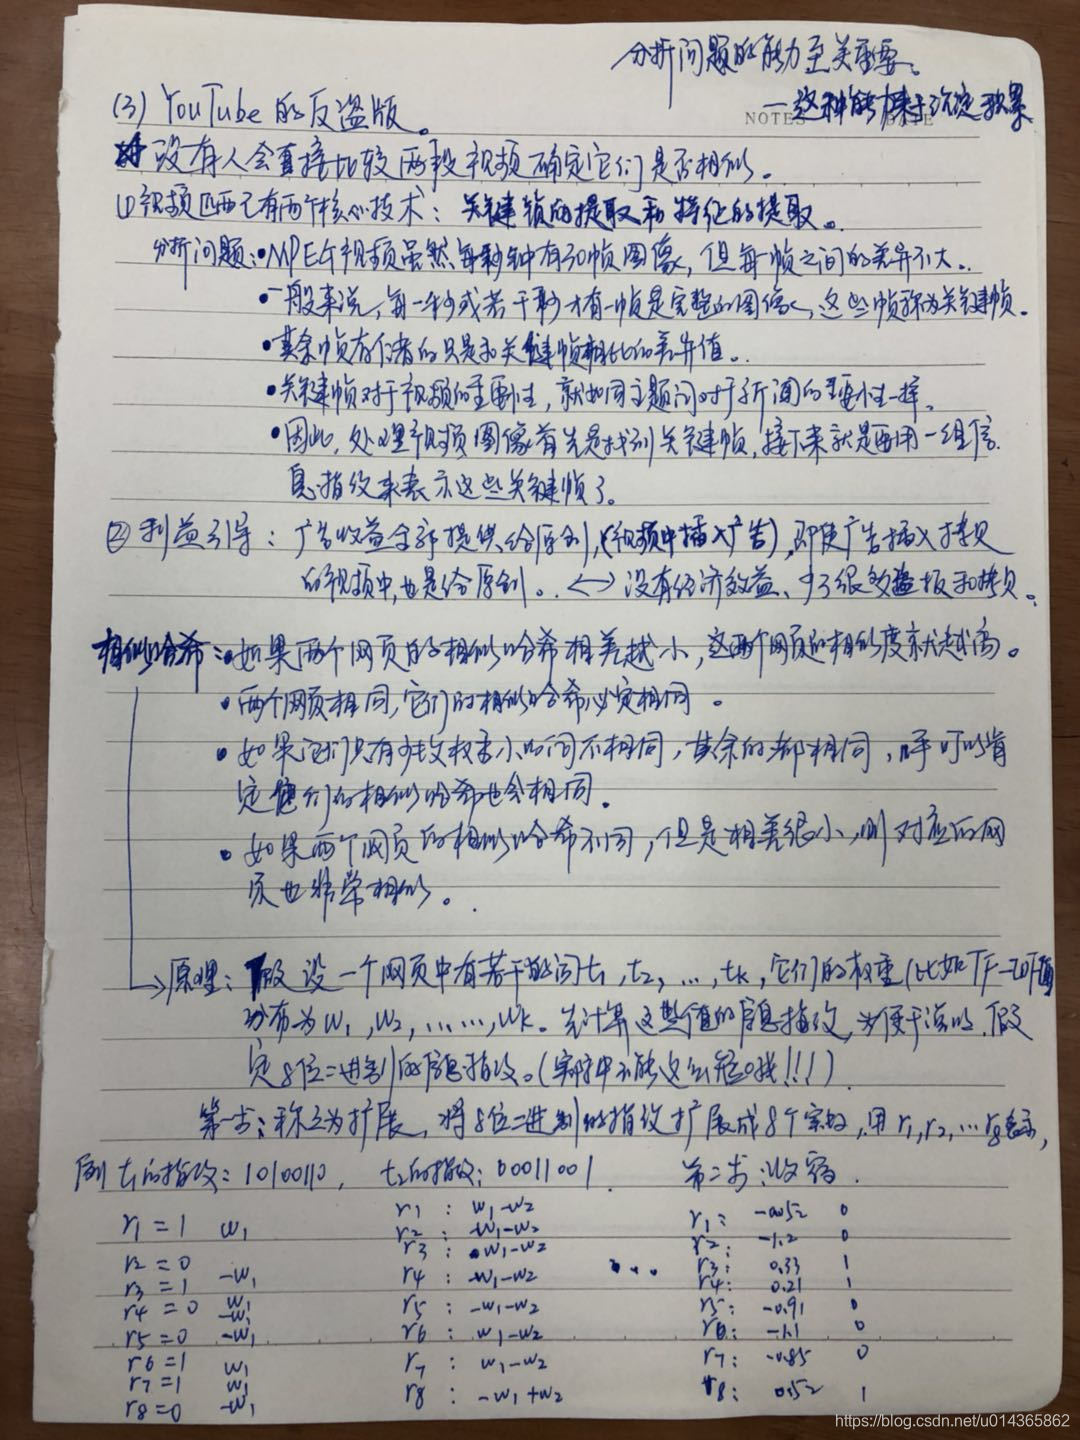 分析问题的能力至关重要。
—这种能力来于沉淀积累
NOTES DATE
(3) YouTube的反盗版。
没有人会直接比较两段视频确定它们是否相似。
(1) 视频匹配有两个核心技术：关键帧的提取和特征的提取。
分析问题：•MPEG视频虽然每秒钟有30帧图像，但每一帧之间的差异不大。
•一般来说，每一秒或若干秒才有一帧是完整的图像，这些帧称为关键帧。
•其余帧存储的只是和关键帧相比的差异值。
•关键帧对于视频的重要性，就如同主题词对于新闻的重要性一样。
•因此，处理视频图像首先是找到关键帧，接下来就是要用一组信
息指纹来表示这些关键帧了。
② 利益引导：广告收益全部提供给原创，(视频中插入广告)，即使广告插入拷贝
的视频中，也是给原创。<-> 没有经济效益、少了很多盗版和拷贝。
相似哈希：•如果两个网页的相似哈希相差越小，这两个网页的相似度就越高。
•两个网页相同，它们的相似哈希必定相同。
•如果它们只有少数权重小的词不相同，其余的都相同，可以肯
定他们的相似哈希也会相同。
•如果两个网页的相似哈希不同，但是相差很小，则对应的网
页也非常相似。
原理：假设一个网页中有若干的词t1,t2,…,tk，它们的权重(比如TF-IDF值
分布为w1,w2,……,wk。先计算这些值的信息指纹，为便于说明，假
定8位二进制的信息指纹。(实际中不能这么短哦!!!)
第一步：称之为扩展，将8位二进制的指纹扩展成8个实数，用r1,r2,…r8表示，
则t1的指纹：10100110， t2的指纹：00011001. 第二步：收缩.
r1=1 w1 r1 : w1-w2 r1: -0.52 0
r2=0 -w1 r2 : -w1-w2 r2: -1.2 0
r3=1 w1 r3 : w1-w2 ... r3: 0.33 1
r4=0 -w1 r4 : -w1-w2 r4: 0.21 1
r5=0 -w1 r5 : -w1-w2 r5: -0.91 0
r6=1 w1 r6 : w1-w2 r6: -1.1 0
r7=1 w1 r7 : w1-w2 r7: -0.85 0
r8=0 -w1 r8 : -w1+w2 r8: 0.52 1
https://blog.csdn.net/u014365862